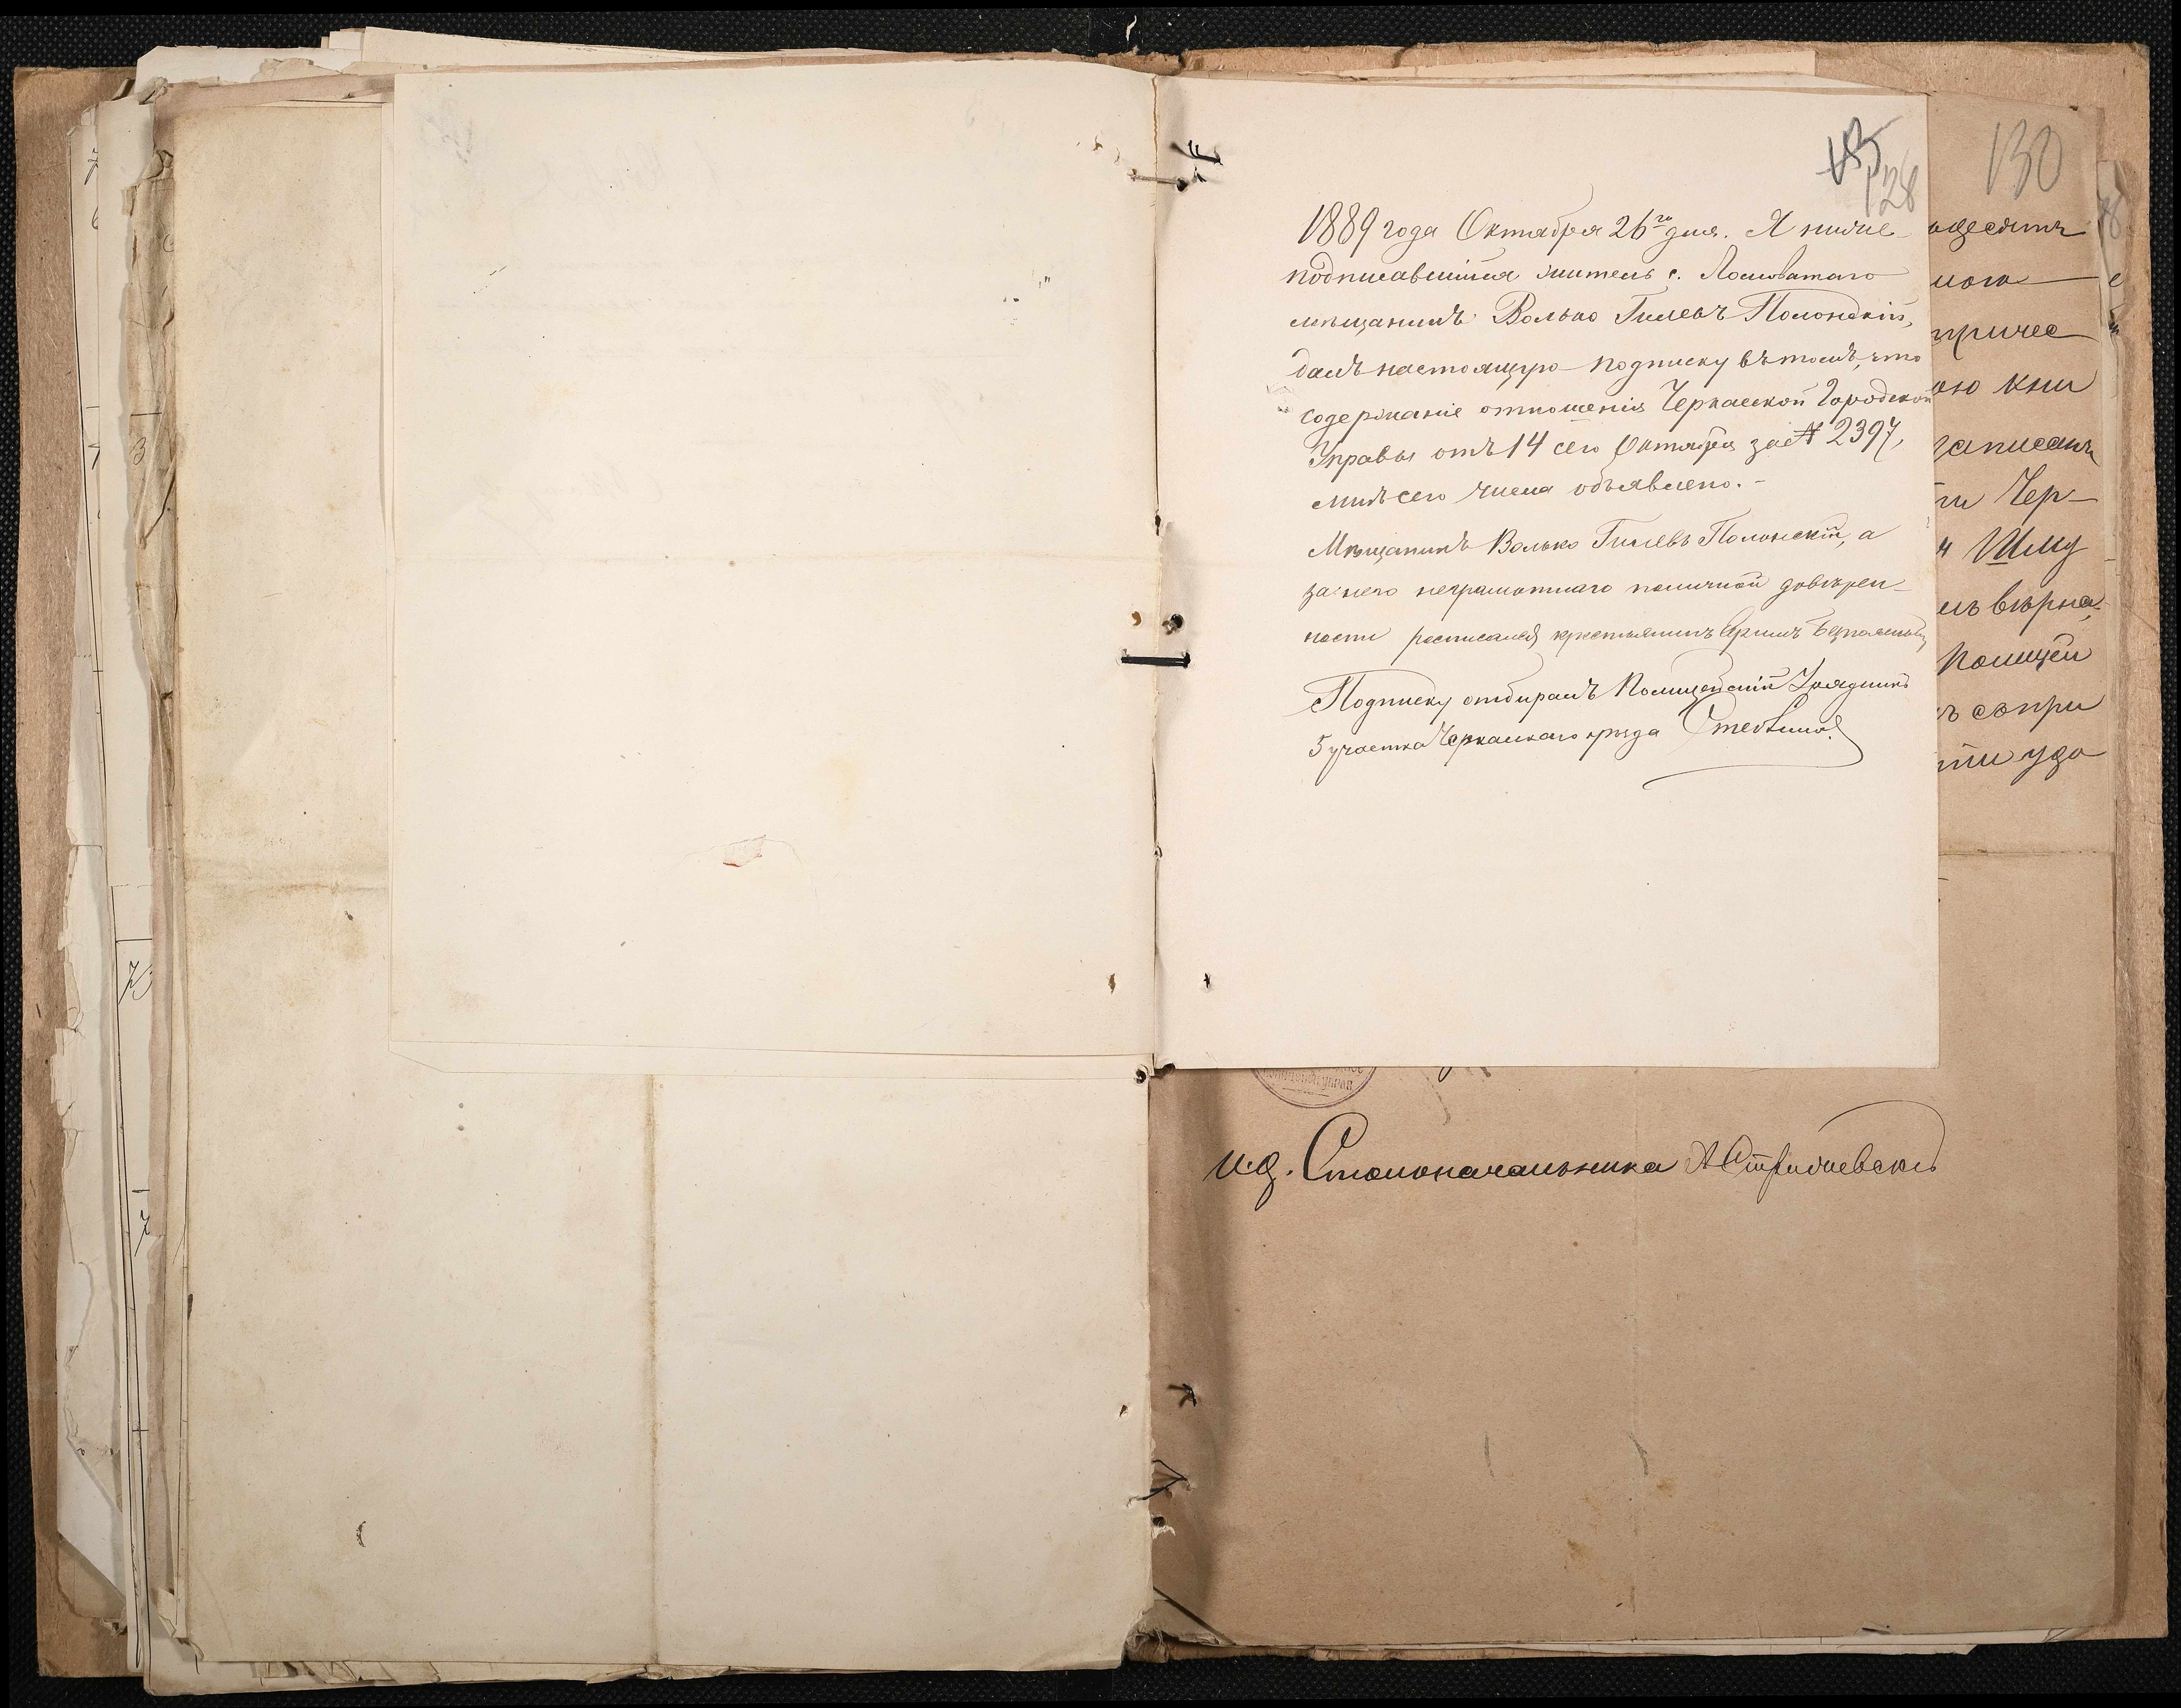 128
130
1889 года Октября 26го дня. Я ниже-
подписавшійся житель с. Ломоватаго
мѣщанинъ Волько Гилевъ Полонскій,
далъ настоящую подписку въ томъ, что
содержаніе отношенія Черкасской Городской
Управы отъ 14 сего Октября за № 2397,
мнѣ сего числа объявлено.-
Мѣщанинъ Волько Гилевъ Полонскій, а
за него неграмотнаго по личной довѣрен-
ности росписался крестьянинъ
Подписку отбиралъ Полицейскій Урядникъ
5 участка Черкасскаго уѣзда
ною
ою кни
записанъ
ти Чер-
и Шму
вѣрна,
Полицей
ъ сопри
ти удо
И. д. Столоначальника